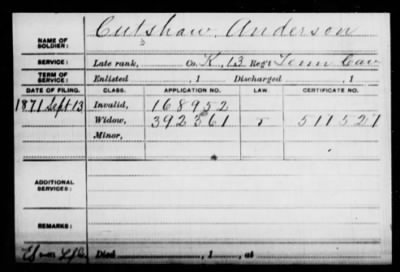 NAME OF SOLDIER: Cutshaw, Anderson
SERVICE: Late rank, Co. K, 13 Reg't Tenn Cav
TERM OF SERVICE: Enlisted , 1 Discharged , 1
DATE OF FILING. CLASS. APPLICATION NO. LAW. CERTIFICATE NO.
1871 Sept 13 Invalid, 168952
Widow, 392561 511521
Minor,
ADDITIONAL SERVICES:
REMARKS:
Died , 1 , at